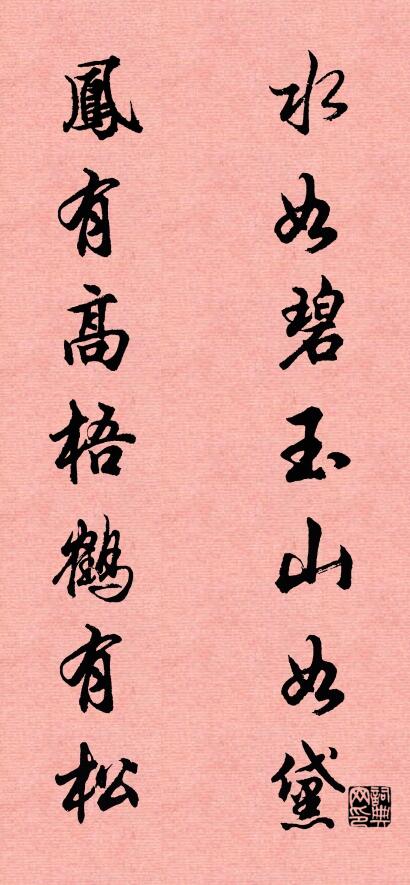 水如碧玉山如黛
鳳有高梧鶴有松
詞典网印